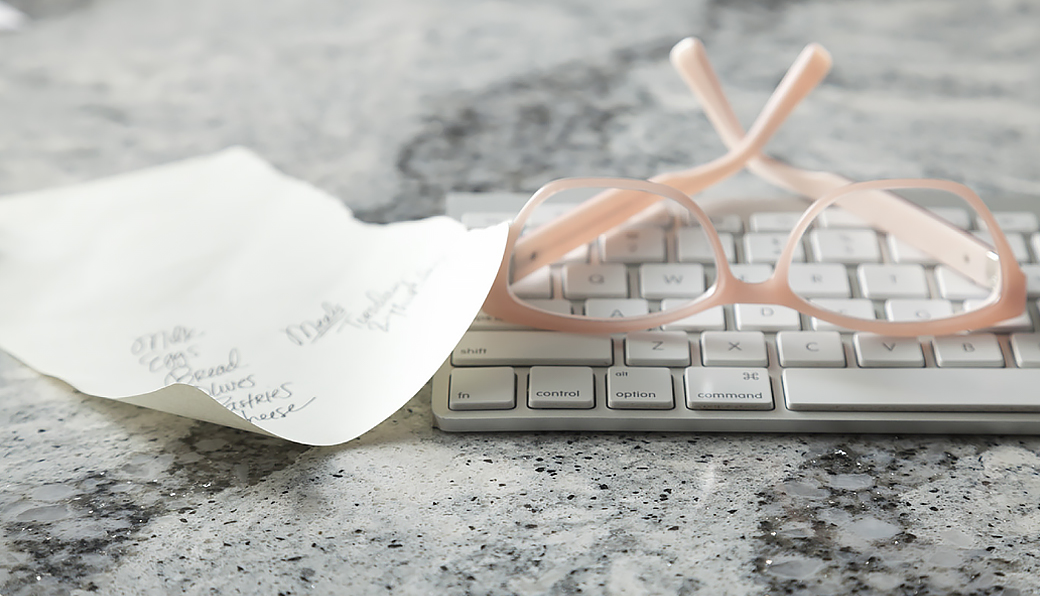 Milk
Eggs
Bread
lives
astries
heese
Meals
Q W R T
A D G
shift Z X C V B
fn control alt option ⌘ command